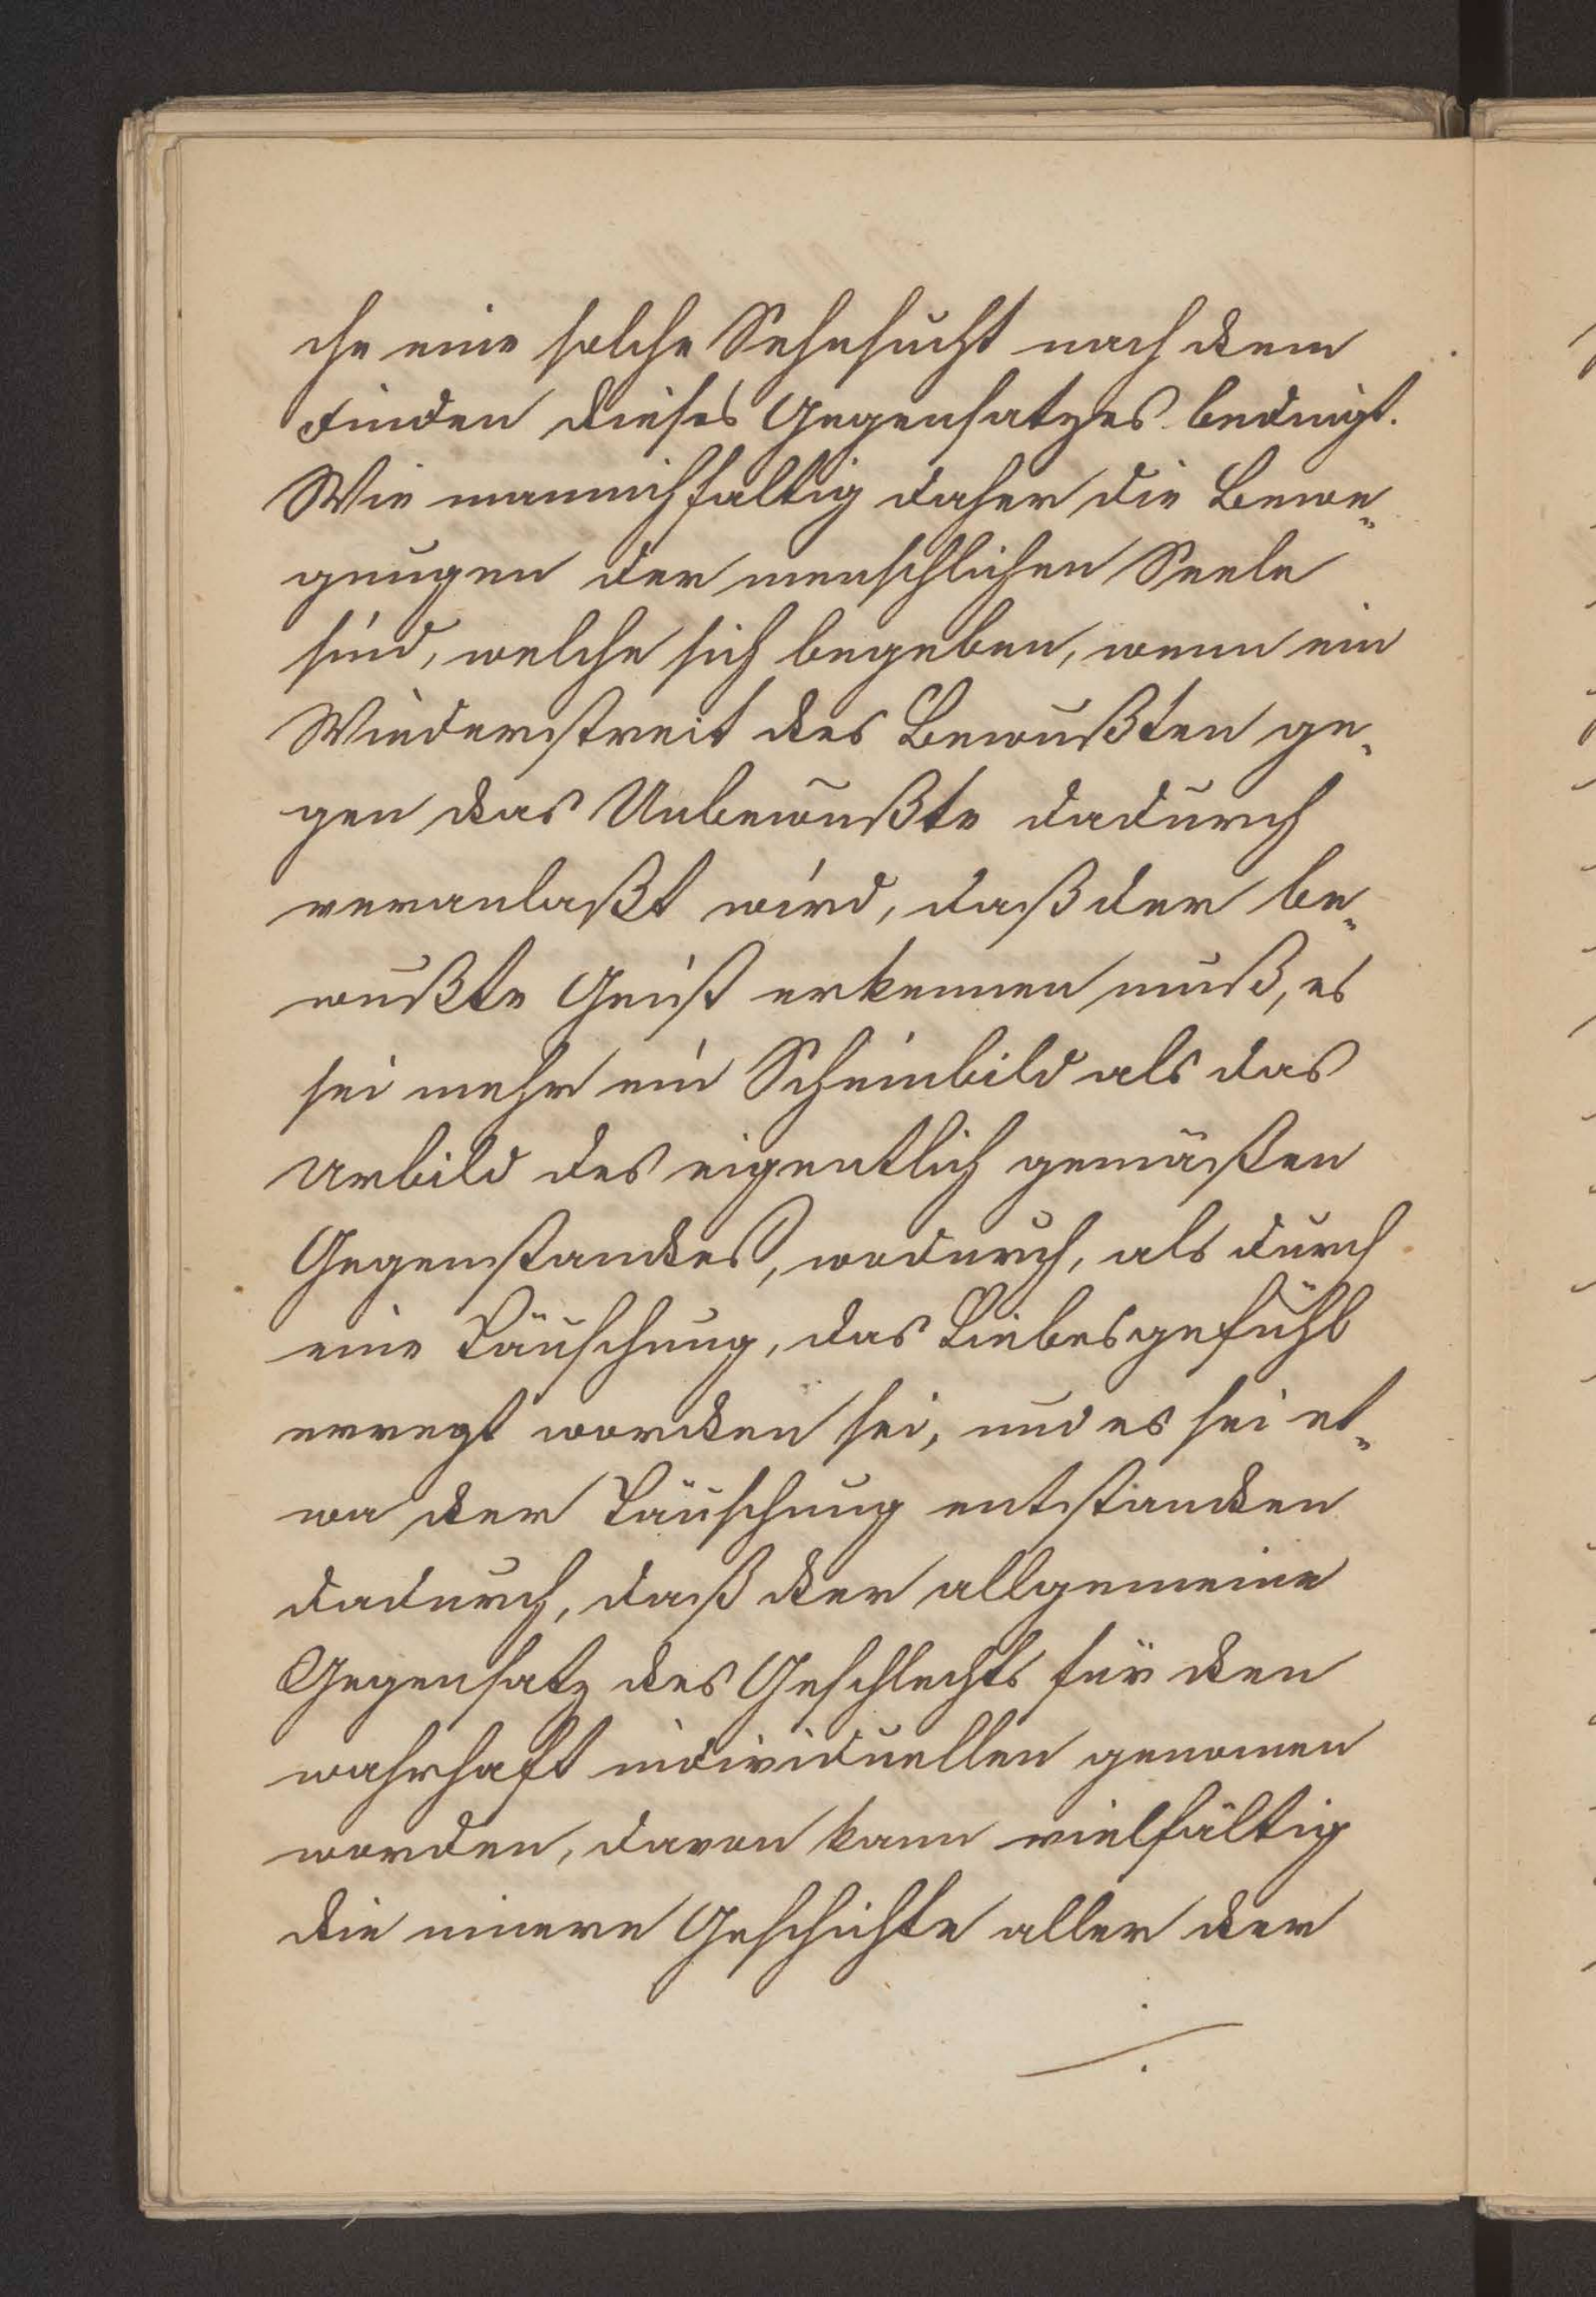 che eine solche Sehnsucht nach dem
Finden dieses Gegensatzes bedingt.
Wie mannichfaltig daher die Bewe„
gungen der menschlichen Seele
sind, welche sich begeben, wenn ein
Wiederstreit des Bewußten ge„
gen das Unbewußte dadurch
veranlaßt wird, daß der be„
wußte Geist erkennen muß, es
sei mehr ein Scheinbild als das
Urbild des eigentlich gemäßen
Gegenstandes, wodurch, als durch
eine Täuschung, das Liebesgefühl
erregt worden sei, und es sei et„
wa der Täuschung entstanden
dadurch, daß der allgemeine
Gegensatz des Geschlechts für den
wahrhaft individuellen genomen
worden, davon kann vielfältig
die innere Geschichte aller der
./.